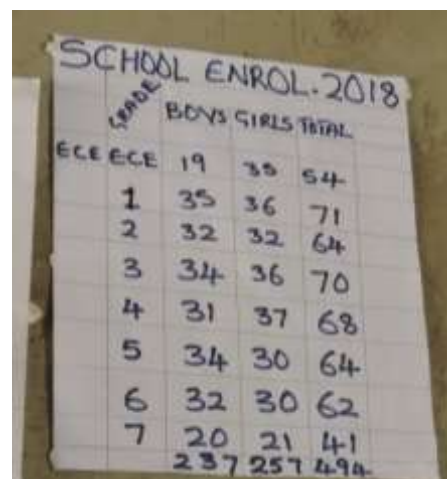 SCHOOL ENROL. 2018
GRADE BOYS GIRLS TOTAL
ECE ECE 19 35 54
1 35 36 71
2 32 32 64
3 34 36 70
4 31 37 68
5 34 30 64
6 32 30 62
7 20 21 41
237 257 494